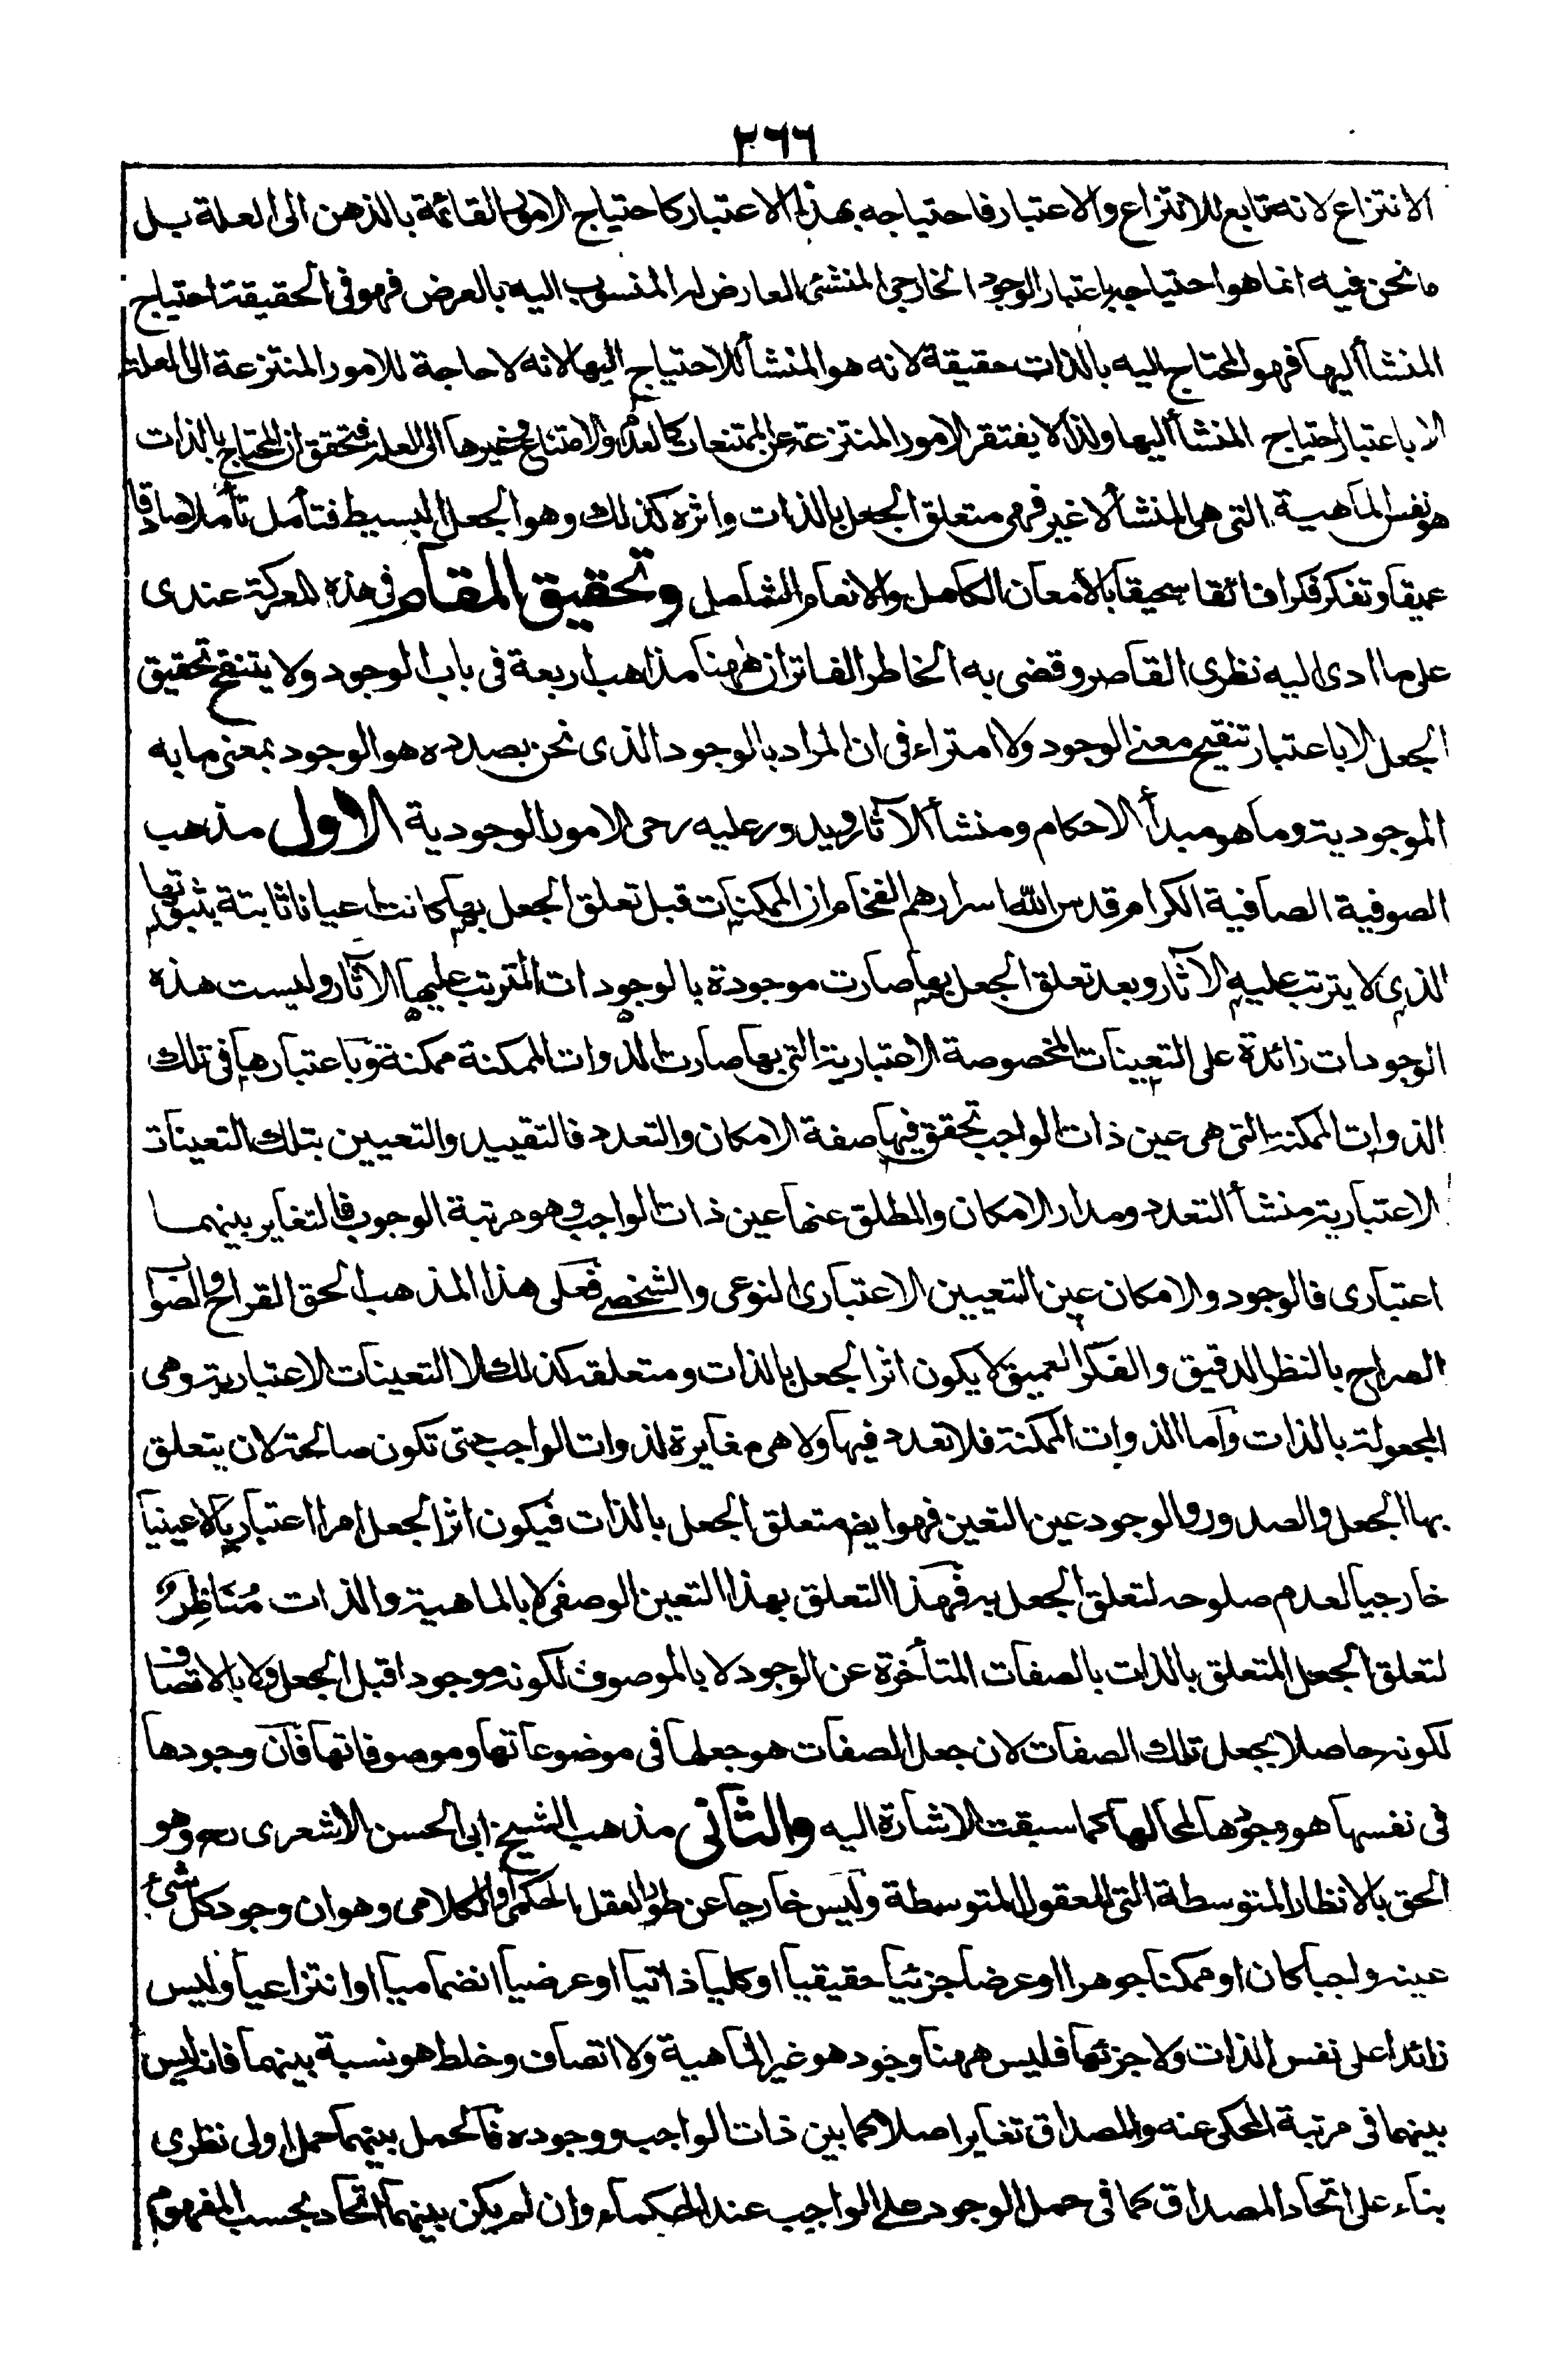 ٢٦٦
الانتزاع لانه تابع للانتزاع والاعتبار فاحتياجه بهذا الاعتبار كاحتياج الامور القائمة بالذهن الى العلة بل
ما نحن فيه انما هو احتياجه باعتبار الوجود الخارجى المنشئى العارض له المنسوب اليه بالعرض فهو فى الحقيقة احتياج
المنشأ اليها فهو المحتاج اليه بالذات حقيقة لانه هو المنشأ للاحتياج اليها لانه لا حاجة للامور المنتزعة الى العلة
الا باعتبار احتياج المنشأ اليها ولذا لا يفتقر الامور المنتزعة عن الممتنعات كالعدم والامتناع وغيرها الى العلة فتحقق ان المحتاج بالذات
هو نفس الماهية التى هى المنشأ لا غير فهى متعلق الجعل بالذات واثره كذلك وهو الجعل البسيط فتأمل تأملا صادقا
عميقا وتفكر فكرا فائقا سحيقا بالامعان الكامل والانعام الشامل وتحقيق المقام فى هذه المعركة عندى
على ما ادى اليه نظرى القاصر وقضى به الخاطر الفاتر ان ههنا مذاهب اربعة فى باب الوجود ولا يتنقح تحقيق
الجعل الا باعتبار تنقيح معنى الوجود ولا امتراء فى ان المراد بالوجود الذى نحن بصدده هو الوجود بمعنى ما به
الموجودية وما هو مبدأ الاحكام ومنشأ الآثار ويدور عليه رحى الامور الوجودية الاول مذهب
الصوفية الصافية الكرام قدس الله اسرارهم الفخام ان الممكنات قبل تعلق الجعل بها كانت اعيانا ثابتة بثبوتها
الذى لا يترتب عليه الآثار وبعد تعلق الجعل بها صارت موجودة بالوجودات المترتب عليها الآثار وليست هذه
الوجودات زائدة على التعينات المخصوصة الاعتبارية التى بها صارت الذوات الممكنة ممكنة وباعتبارها فى تلك
الذوات الممكنة التى هى عين ذات الواجب تحقق فيها صفة الامكان والتعدد فالتقييد والتعيين بتلك التعينات
الاعتبارية منشأ التعدد ومدار الامكان والمطلق عنها عين ذات الواجب وهو مرتبة الوجوب فالتغاير بينهما
اعتبارى فالوجود والامكان عين التعيين الاعتبارى النوعى والشخصى فعلى هذا المذهب الحق القراح والصواب
الصراح بالنظر الدقيق والفكر العميق لا يكون اثر الجعل بالذات ومتعلقه كذلك الا التعينات الاعتبارية وهى
المجعولة بالذات واما الذوات الممكنة فلا تعدد فيها ولا هى مغايرة لذوات الواجب حتى تكون صالحة لان يتعلق
بها الجعل والصدور والوجود عين التعين فهو ايضا متعلق الجعل بالذات فيكون اثر الجعل امرا اعتباريا لا عينيا
خارجيا لعدم صلوحه لتعلق الجعل به فهذا التعلق بهذا التعين الوصفى لا بالماهية والذات مُنَاظِرٌ
لتعلق الجعل المتعلق بالذات بالصفات المتأخرة عن الوجود لا بالموصوف لكونه موجودا قبل الجعل ولا بالاتصاف
لكونه حاصلا بجعل تلك الصفات لان جعل الصفات هو جعلها فى موضوعاتها وموصوفاتها فان وجودها
فى نفسها هو وجودها لمحالها كما سبقت الاشارة اليه والثانى مذهب الشيخ ابى الحسن الاشعرى رحـ وهو
الحق بالانظار المتوسطة التى للعقول المتوسطة وليس خارجا عن طور العقل الحكمى والكلامى وهو ان وجود كل شىء
عينه واجبا كان او ممكنا جوهرا او عرضا جزئيا حقيقيا او كليا ذاتيا او عرضيا انضماميا او انتزاعيا وليس
زائدا على نفس الذات ولا جزئها فليس ههنا وجود هو غير الماهية ولا اتصاف وخلط هو نسبة بينهما فانه ليس
بينهما فى مرتبة المحكى عنه والمصداق تغاير اصلا كما بين ذات الواجب ووجوده فالحمل بينهما حمل اولى نظرى
بناء على اتحاد المصداق كما فى حمل الوجود على الواجب عند الحكماء وان لم يكن بينهما اتحاد بحسب المفهوم